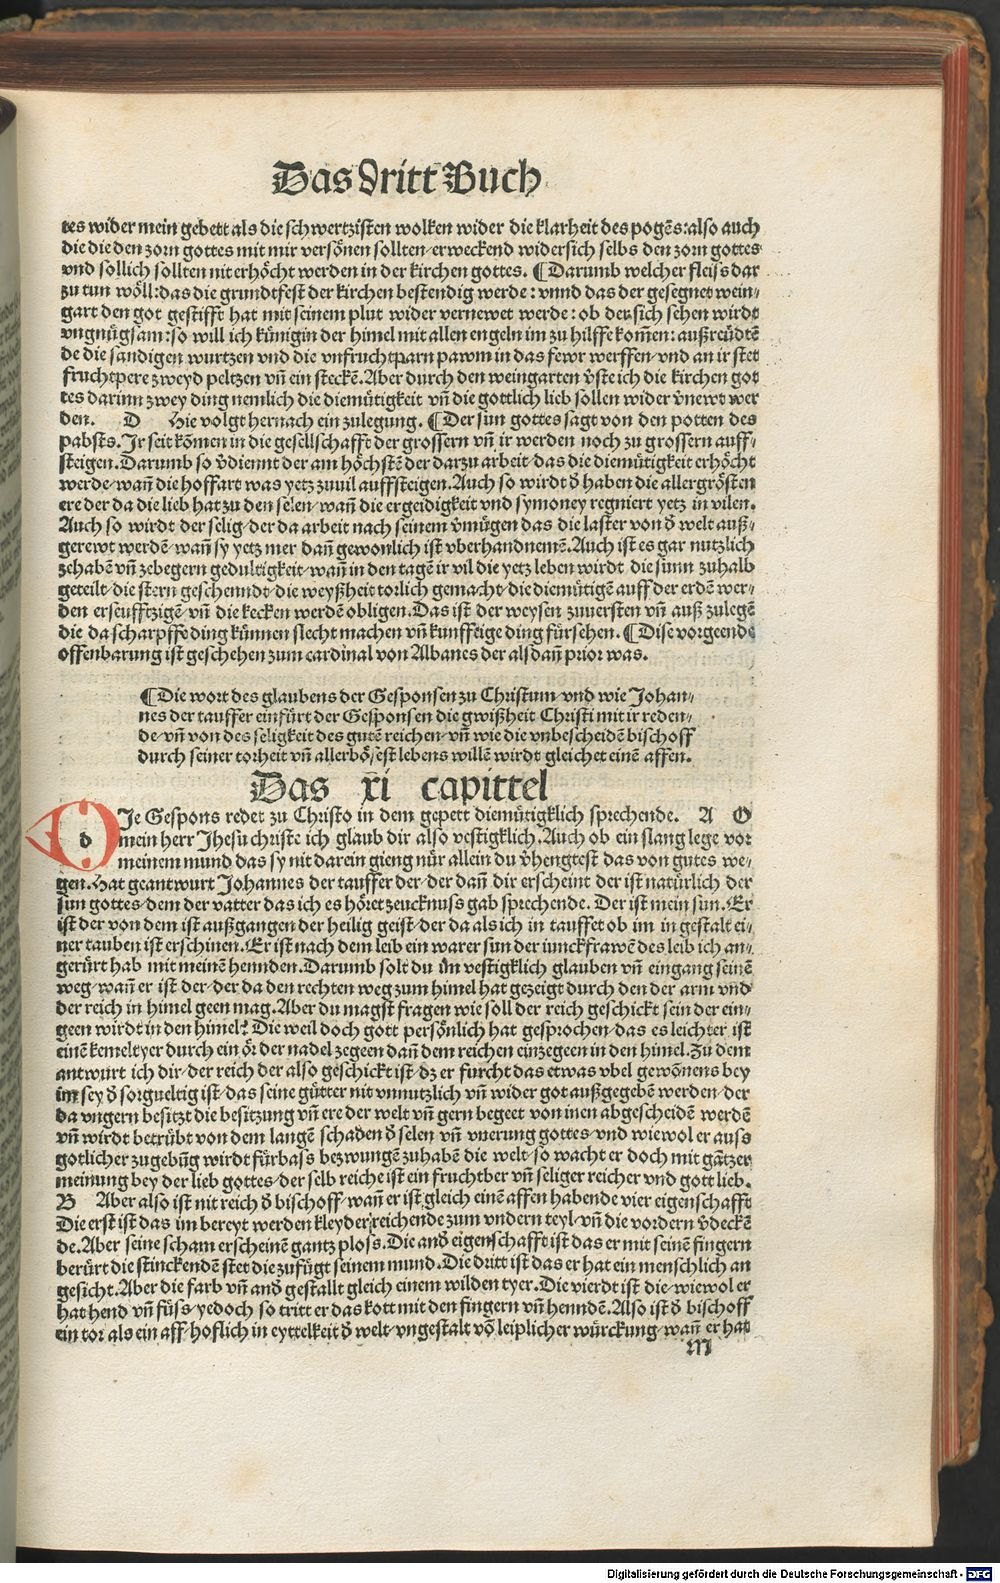 Das dritt Buch
tes wider mein gebett als die schwertzisten wolken wider die klarheit des pogēs: also auch
die die den zorn gottes mit mir versönen sollten/erweckend wider sich selbs den zorn gottes
vnd sollich sollten nit erhöcht werden in der kirchen gottes. ¶ Darumb welcher fleiss dar
zu tun wöll: das die grundtfest der kirchen bestendig werde: vnnd das der gesegnet wein⸗
gart den got gestifft hat mit seinem plut wider vernewet werde: ob der sich sehen wirdt
vngnügsam: so will ich künigin der himel mit allen engeln im zu hilffe kom̄en: außreüdtē
de die sandigen wurtzen vnd die vnfruchtparn pawm in das fewr werffen/vnd an ir stet
fruchtpere zweyd peltzen vn̄ ein steckē. Aber durch den weingarten v̄ste ich die kirchen got
tes darinn zwey ding nemlich die diemütigkeit vn̄ die gottlich lieb sollen wider v̄newt wer
den. D Hie volgt hernach ein zulegung. ¶ Der sun gottes sagt von den potten des
pabsts. Ir seit kōmen in die gesellschafft der grossern vn̄ ir werden noch zu grossern auff⸗
steigen. Darumb so v̄diennt der am höchstē der darzu arbeit/das die diemütigkeit erhöcht
werde/wan̄ die hoffart was yetz zuuil auffsteigen. Auch so wirdt d̄ haben die allergrösten
ere der da die lieb hat zu den selen/wan̄ die ergeidigkeit vnd symoney regniert yetz in vilen.
Auch so wirdt der selig/der da arbeit nach seinem v̄mügen das die laster von d̄ welt auß⸗
gerewt werdē/wan̄ sy yetz mer dan̄ gewonlich ist vberhandnemē. Auch ist es gar nutzlich
zehabē vn̄ zebegern gedultigkeit/wan̄ in den tagē ir vil die yetz leben wirdt die sunn zuhalb
geteilt/die stern geschenndt/die weyßheit torlich gemacht/die diemütigē auff der erdē wer⸗
den erseufftzigē/vn̄ die kecken werdē obligen. Das ist der weysen zuuersten vn̄ auß zulegē
die da scharpffe ding künnen slecht machen vn̄ kunfftige ding fürsehen. ¶ Dise vorgeende
offenbarung ist geschehen zum cardinal von Albanes der als dan̄ prior was.
¶ Die wort des glaubens der Gesponsen zu Christum/vnd wie Johan⸗
nes der tauffer einfürt der Gesponsen die gwißheit Christi mit ir reden⸗
de/vn̄ von des seligkeit des gutē reichen/vn̄ wie die vnbescheidē bischoff
durch seiner torheit vn̄ allerbösest lebens willē wirdt gleichet einē affen.
Das xi capittel
d Je Gespons redet zu Christo in dem gepett diemütigklich sprechende. A O
mein herr Jhesu christe ich glaub dir also vestigklich. Auch ob ein slang lege vor
meinem mund das sy nit darein gieng nür allein du v̄hengtest das von gutes we⸗
gen. Hat geantwurt Johannes der tauffer der/der dan̄ dir erscheint der ist natürlich der
sun gottes/dem der vatter das ich es höret zeucknuss gab sprechende. Der ist mein sun. Er
ist der von dem ist außgangen der heilig geist/der da als ich in tauffet ob im in gestalt ei⸗
ner tauben ist erschinen. Er ist nach dem leib ein warer sun der iunckfrawē des leib ich an⸗
gerürt hab mit meinē hennden. Darumb solt du im vestigklich glauben vn̄ eingang seinē
weg/wan̄ er ist der/der da den rechten weg zum himel hat gezeigt durch den der arm vnd
der reich in himel geen mag. Aber du magst fragen wie soll der reich geschickt sein der ein⸗
geen wirdt in den himel? Die weil doch gott persönlich hat gesprochen/das es leichter ist
einē kemeltyer durch ein ör der nadel zegeen dan̄ dem reichen einzegeen in den himel. Zu dem
antwurt ich dir/der reich der also geschickt ist/dz er furcht das etwas vbel gewōnens bey
im sey d̄ sorgueltig ist/das seine gütter nit vnnutzlich vn̄ wider got außgegebē werden/der
da vngern besitzt die besitzung vn̄ ere der welt vn̄ gern begeet von inen abgescheidē werdē
vn̄ wirdt betrübt von dem langē schaden d̄ selen vn̄ vnerung gottes/vnd wiewol er auss
gotlicher zugebūg wirdt fürbass bezwungē zuhabē die welt/so wacht er doch mit gātzer
meinung bey der lieb gottes/der selb reiche ist ein fruchtber vn̄ seliger reicher vnd gott lieb.
B Aber also ist nit reich d̄ bischoff/wan̄ er ist gleich einē affen habende vier eigenschafft
Die erst ist das im bereyt werden kleyder/reichende zum vndern teyl/vn̄ die vordern v̄deckē
de. Aber seine scham erscheinē gantz ploss. Die and̄ eigenschafft ist das er mit seinē fingern
berürt die stinckendē stet die zufügt seinem mund. Die dritt ist das er hat ein menschlich an
gesicht. Aber die farb vn̄ and̄ gestallt gleich einem wilden tyer. Die vierdt ist die/wiewol er
hat hend vn̄ füss/yedoch so tritt er das kott mit den fingern vn̄ henndē. Also ist d̄ bischoff
ein tor als ein aff/hoflich in eyttelkeit d̄ welt/vngestalt vō leiplicher würckung/wan̄ er hat
m
Digitalisierung gefördert durch die Deutsche Forschungsgemeinschaft - DFG